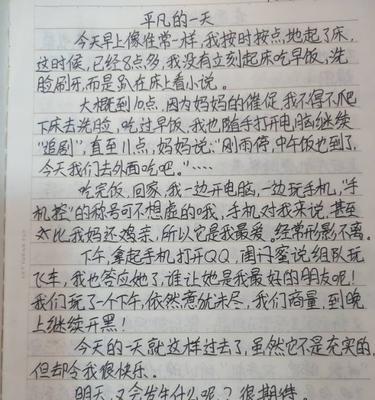 平凡的一天
今天早上像往常一样,我按时按点地起了床,
这时候,已经8点多,我没有立刻起床吃早饭,洗
脸刷牙,而是趴在床上看小说。
大概到10点,因为妈妈的催促,我不得不爬
下床去洗脸,吃过早饭,我也随手打开电脑继续
"追剧",直至11点,妈妈说:"刚雨停,中午饭也到了,
今天我们去外面吃吧。"····
吃完饭,回家,我一边开电脑,一边玩手机,"手
机控"的称号可不想虚的哦,手机对我来说,甚至
比我妈还鸡亲,所以它是我最爱。经常形影不离。
下午,拿起手机打开QQ,闺门密说组队玩
飞车,我也答应她了,谁让她是我最好的朋友呢!
我们玩了一个下午,依然意犹未尽,我们商量,到晚
上继续开黑!
今天的一天就这样过去了,虽然它不是充实的,
但却令我很快乐.
明天,又会发生什么呢?很期待。